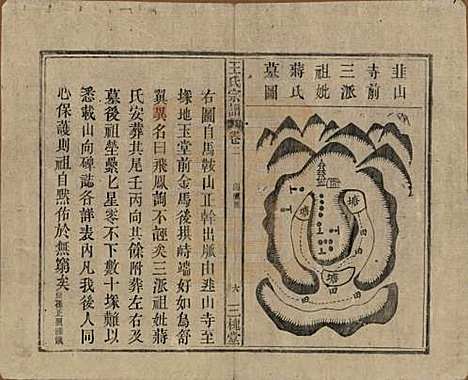 韭山
寺前
三派
祖妣
蔣氏
墓圖
塘
塘
田
田
田
王氏宗譜
卷
三槐堂
右圖自馬鞍山正幹出脈由韭山寺至
塚地玉堂前金馬後拱峙端好如鳥舒
翼異名曰飛鳳洵不誣矣三派祖妣蔣
氏安葬其尾壬丙向其餘附葬左右及
墓後祖塋纍七星零不下數十塚難以
悉載山向碑誌各詳表內凡我後人同
心保護則祖自黙佑於無窮矣